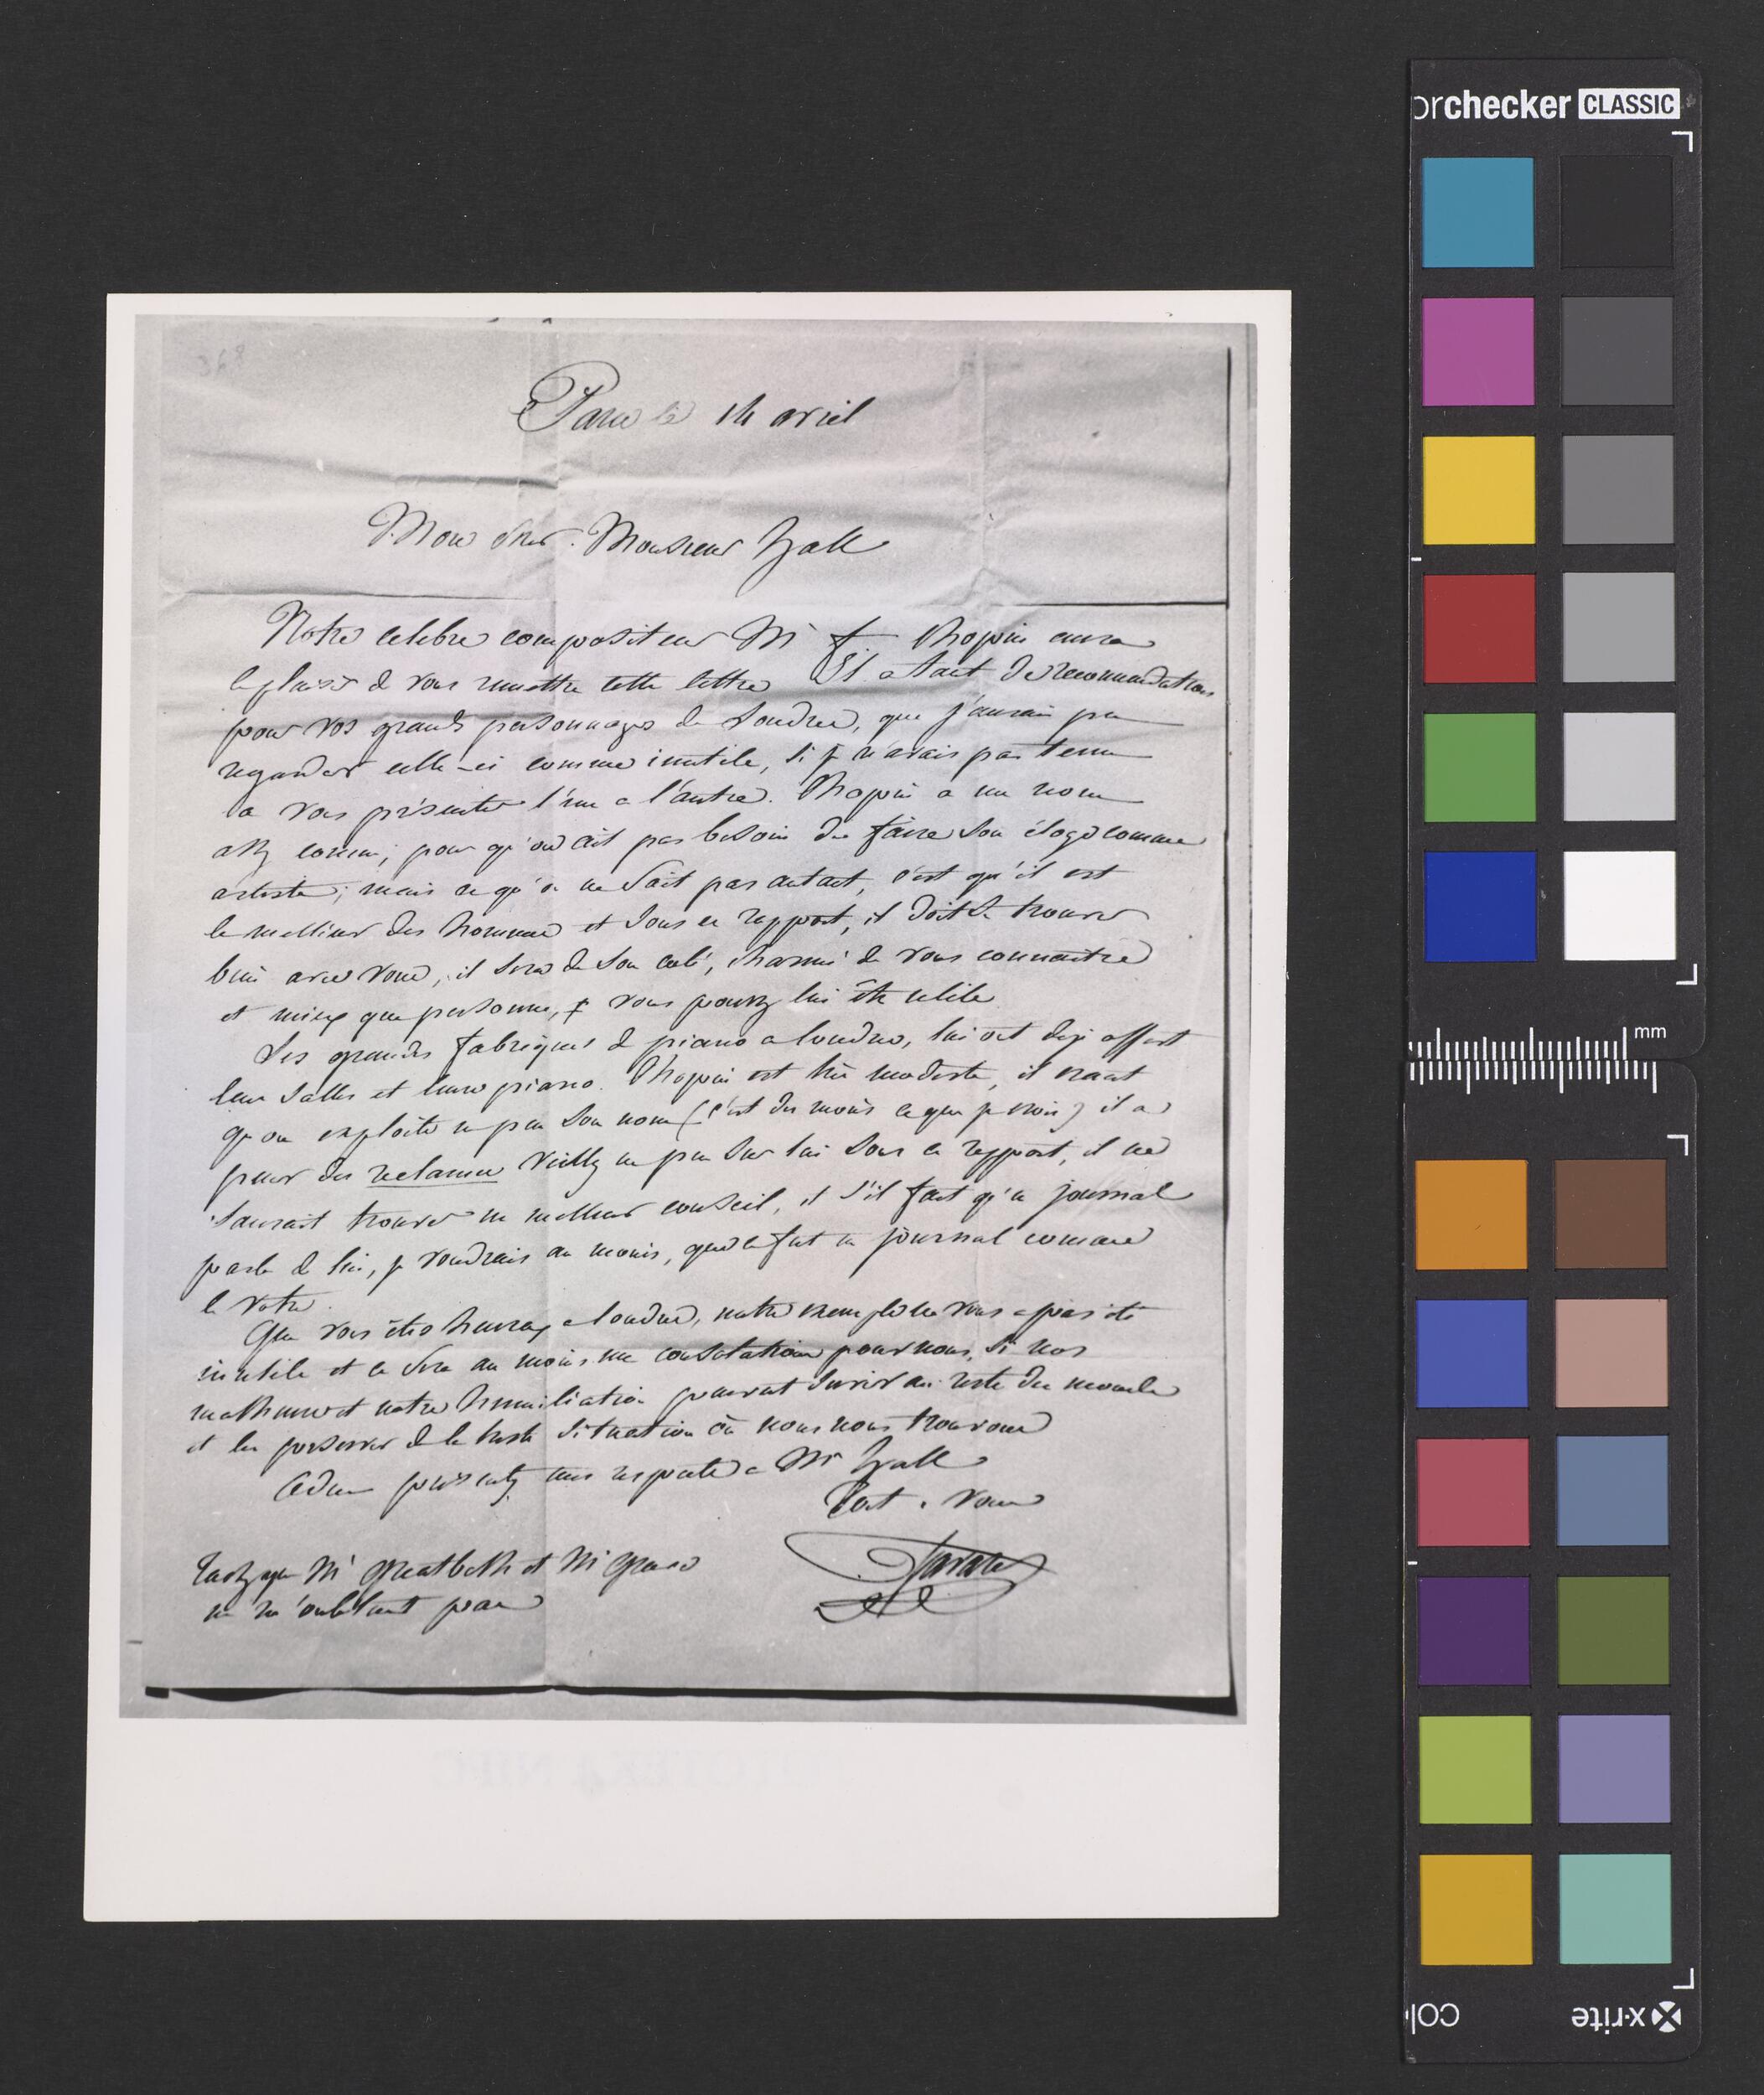 Paris le 14 avril
Mon cher Monsieur Hall
Notre celebre compositeur Mr f. Chopin aura
le plaisir de vous remettre cette lettre Il a tant de recommandations
pour vos grands personnages de Londres, que j'aurais pu
regarder celle-ci comme inutile, si je n'avais pas tenu
a vous présenter l'un a l'autre. Chopin a un nom
assez connu, pour qu'on ait pas besoin de faire son éloge comme
artiste; mais ce qu'on ne sait pas autant, c'est qu'il est
le meilleur des hommes et sous ce rapport, il doit se trouver
bien avec vous, il sera de son coté, charmé de vous connaitre
et mieux que personne, vous pouvez lui être utile
Les grandes fabriques de piano a londres, lui ont deja offert
leurs salles et leurs pianos. Chopin est très modeste, il craint
qu'on exploite un peu son nom (c'est du moins ce que je crois) il a
peur des reclames Veillez un peu sur lui sous ce rapport, il ne
saurait trouver un meilleur conseil, et s'il faut qu'un journal
parle de lui, je voudrais au moins, que ce fut un journal comme
le votre.
Que vous êtes heureux a londres, notre exemple ne vous a pas été
inutile et ce sera au moins une consolation pour nous, si nos
malheurs et notre humiliation peuvent servir au reste du monde
et les preserver de la triste situation où nous nous trouvons
Adieu presentez mes respects a Mr Hall
Tout a vous
Tachez que Mr et Mr
ne m'oublient pas
orchecker CLASSIC
mm
x-rite
col